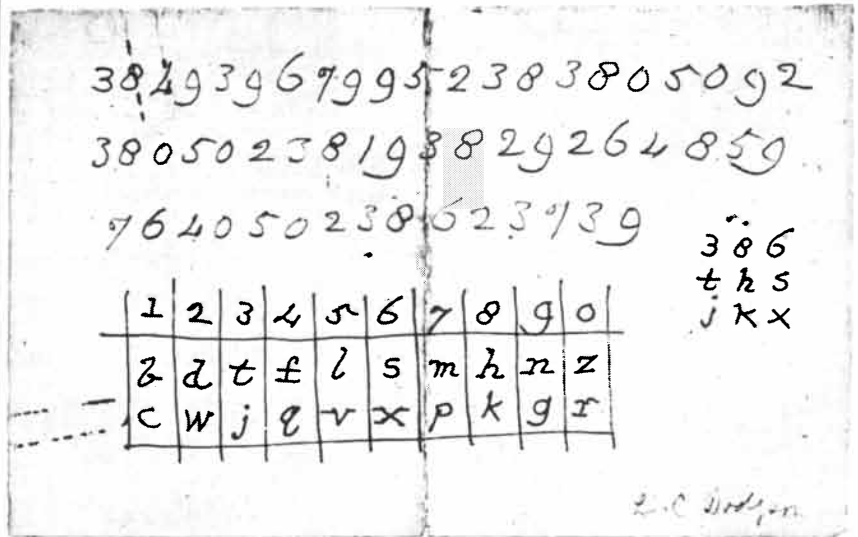 384939679952383805092
38050238193829264859
764050238623739
3 8 6
t h s
j k x
1 2 3 4 5 6 7 8 9 0
b d t f l s m h n z
c w j q v x p k g r
Dodgson